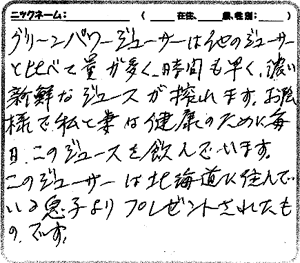 ニックネーム: ( 在住、 歳、性別: )
グリーンパワージューサーは他のジューサー
と比べて量が多く、時間も早く、濃い
新鮮なジュースが搾れます。お陰
様で私と妻は健康のために毎
日、このジュースを飲んでいます。
このジューサーは北海道に住んで
いる息子よりプレゼントされたも
のです。